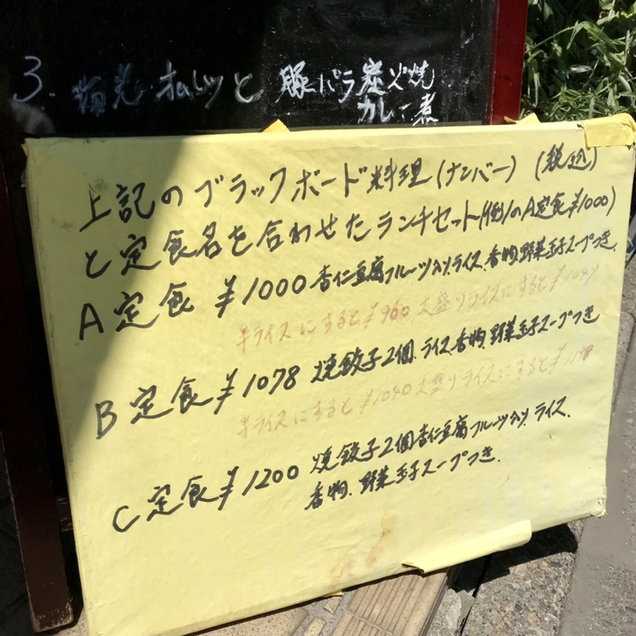 3. オムレツと 豚バラ炭火焼
カレー煮
上記のブラックボード料理(ナンバー) (税込)
と定食名を合わせたランチセット(例)1のA定食¥1000)
A定食 ¥1000 杏仁豆腐フルーツ入り.ライス.香物.野菜玉子スープつき.
半ライスにすると¥960 大盛りライスにすると
B定食¥1078 焼餃子2個.ライス.香物.野菜玉子スープつき
半ライスにすると ¥1040 大盛りライスにすると
C定食¥1200 焼餃子2個杏仁豆腐フルーツ入り.ライス.
香物.野菜玉子スープつき.